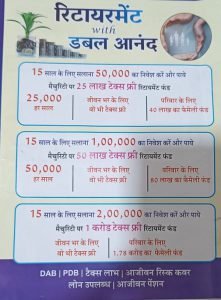 रिटायरमेंट
with
डबल आनंद
15 साल के लिए सलाना 50,000 का निवेश करें और पाये
मैच्युरिटी पर 25 लाख टैक्स फ्री रिटायमेंट फंड
25,000
हर साल
जीवन भर के लिए
वो भी टैक्स फ्री
परिवार के लिए
40 लाख का फैमेली फंड
15 साल के लिए सलाना 1,00,000 का निवेश करें और पाये
मैच्युरिटी पर 50 लाख टैक्स फ्री रिटायमेंट फंड
50,000
हर साल
जीवन भर के लिए
वो भी टैक्स फ्री
परिवार के लिए
80 लाख का फैमेली फंड
15 साल के लिए सलाना 2,00,000 का निवेश करें और पाये
मैच्युरिटी पर 1 करोड टैक्स फ्री रिटायमेंट फंड
जीवन भर के लिए
वो भी टैक्स फ्री
परिवार के लिए
1.78 करोड का फैमेली फंड
DAB | PDB | टैक्स लाभ | आजीवन रिस्क कवर
लोन उपलब्ध | आजीवन पेंशन